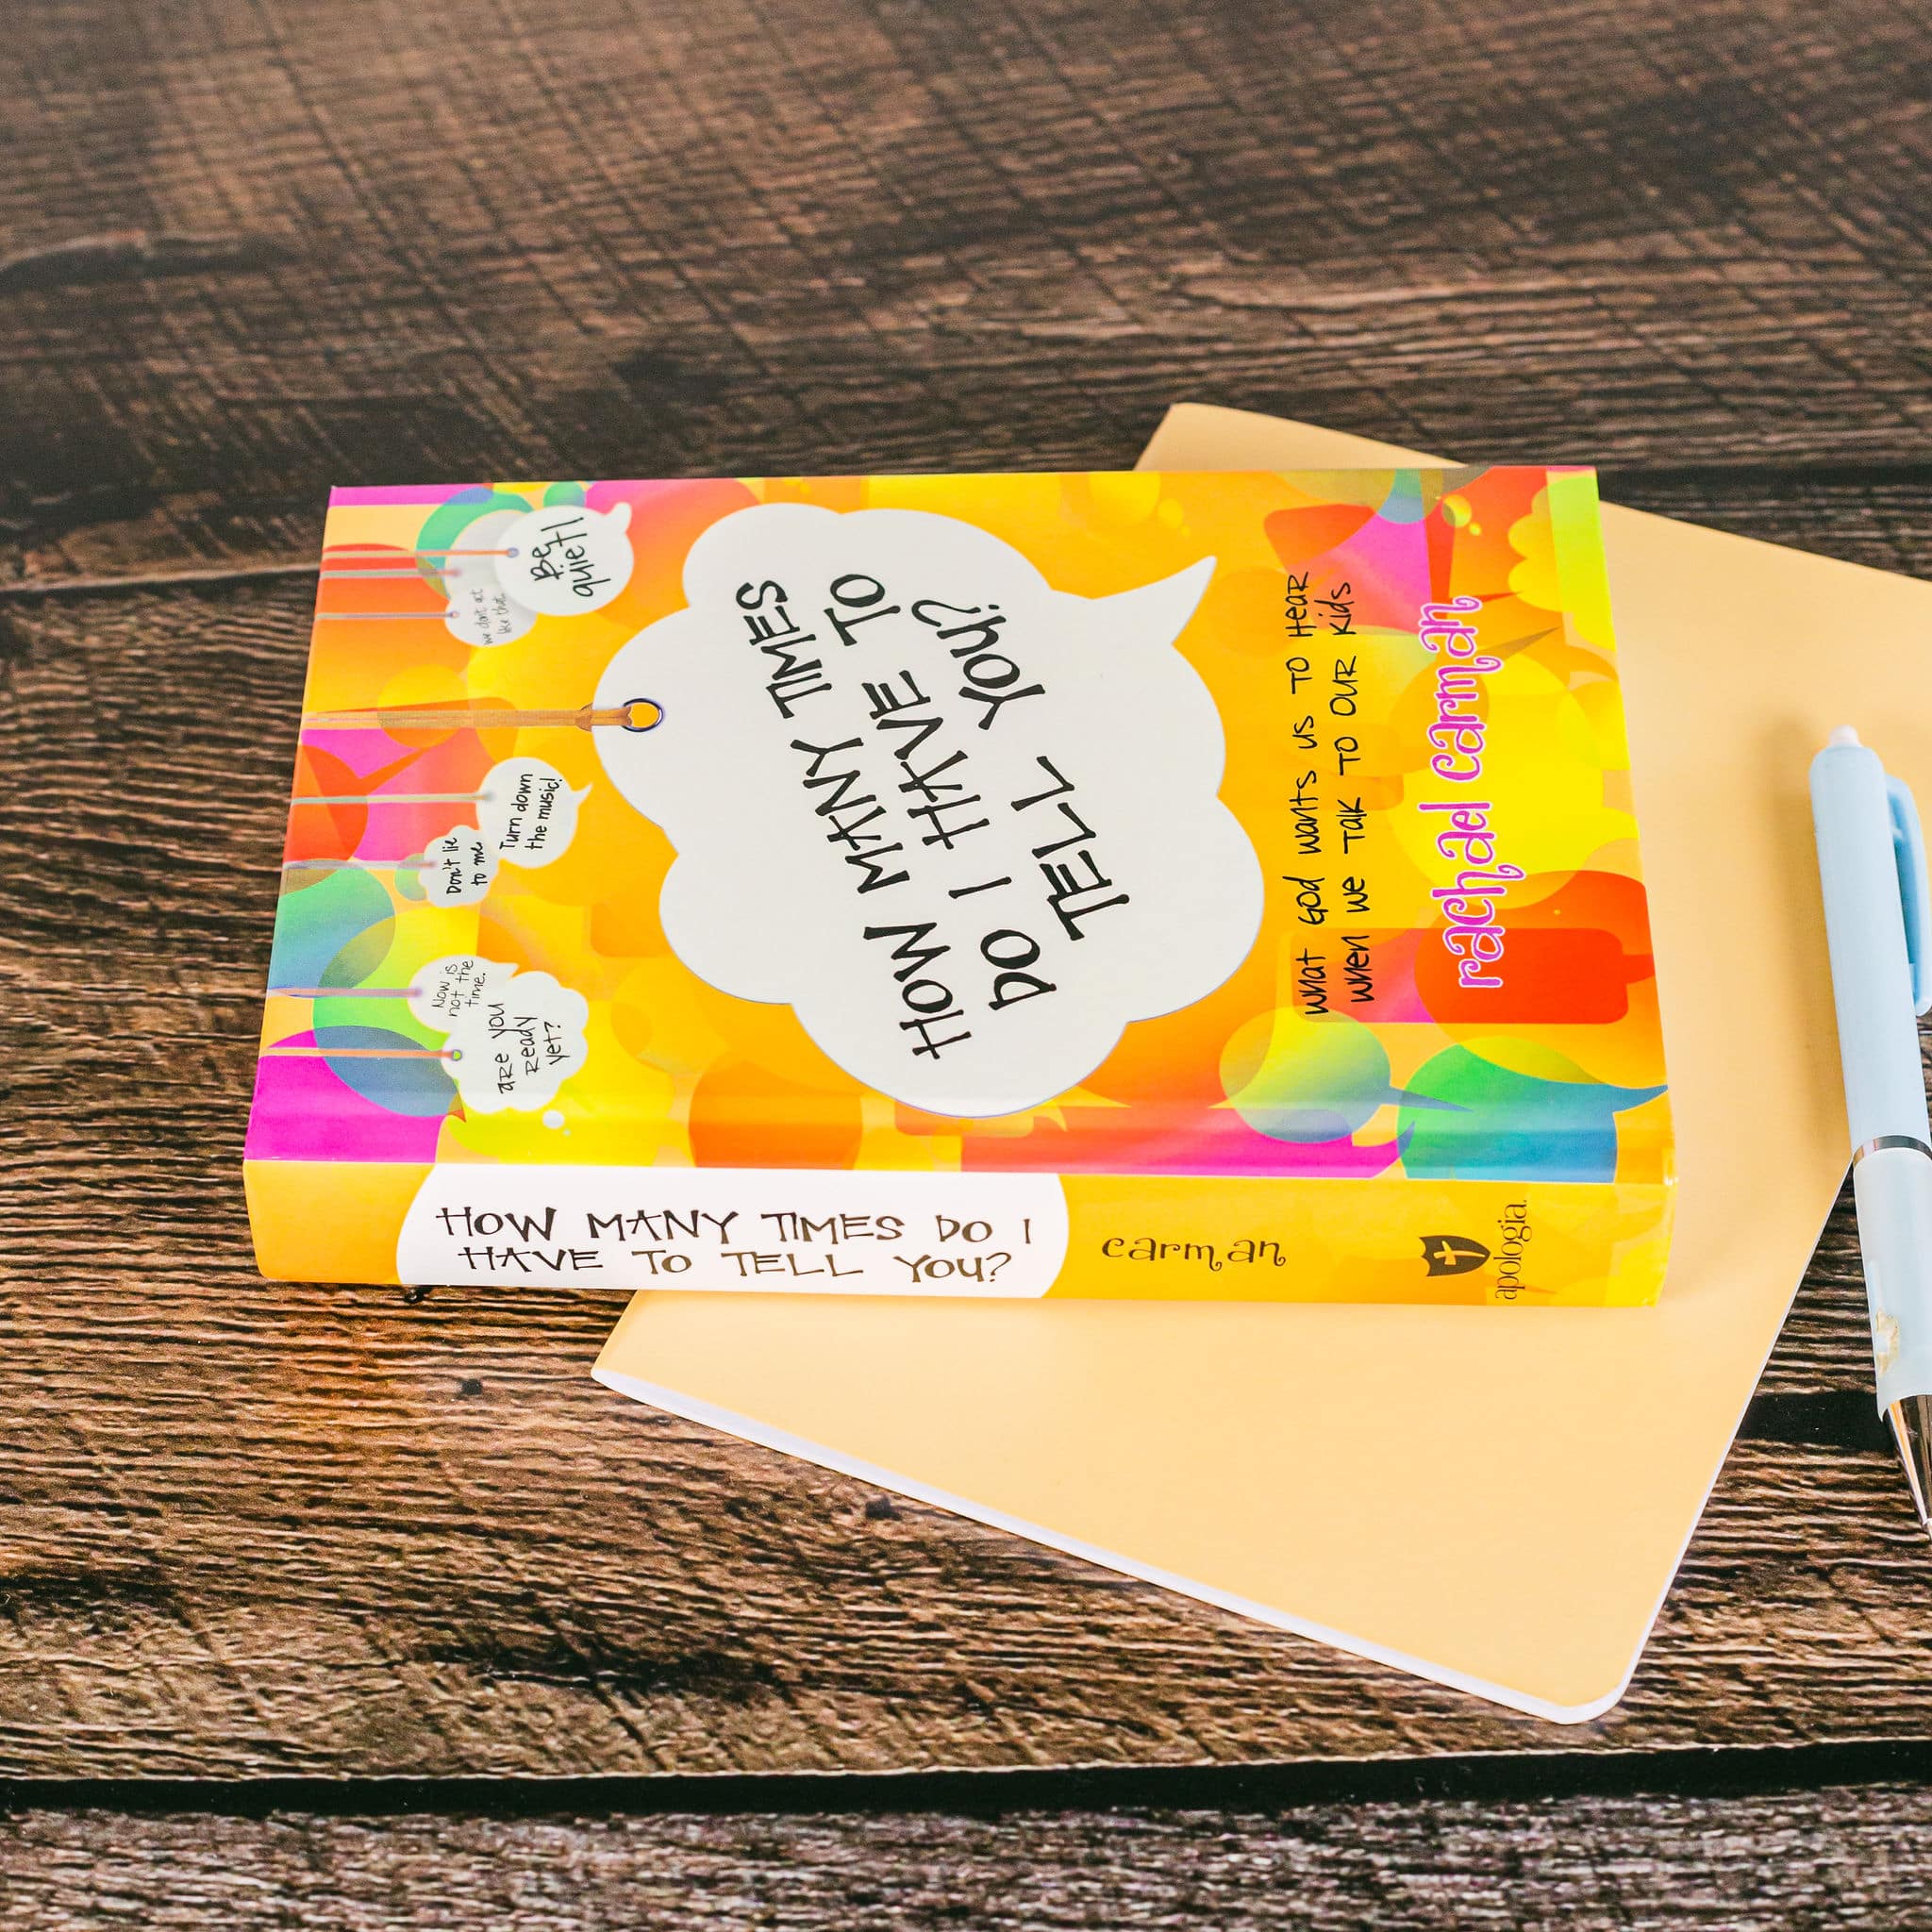 Be
quiet!
we don't act
like that.
Turn down
the music!
Don't lie
to me.
Now is
not the
time.
are you
Ready
yet?
HOW MANY TIMES
DO I HAVE TO
TELL YOU?
what God wants us to Hear
when we Talk to our kids
rachael carman
HOW MANY TIMES DO I
HAVE TO TELL YOU?
carman
apologia.